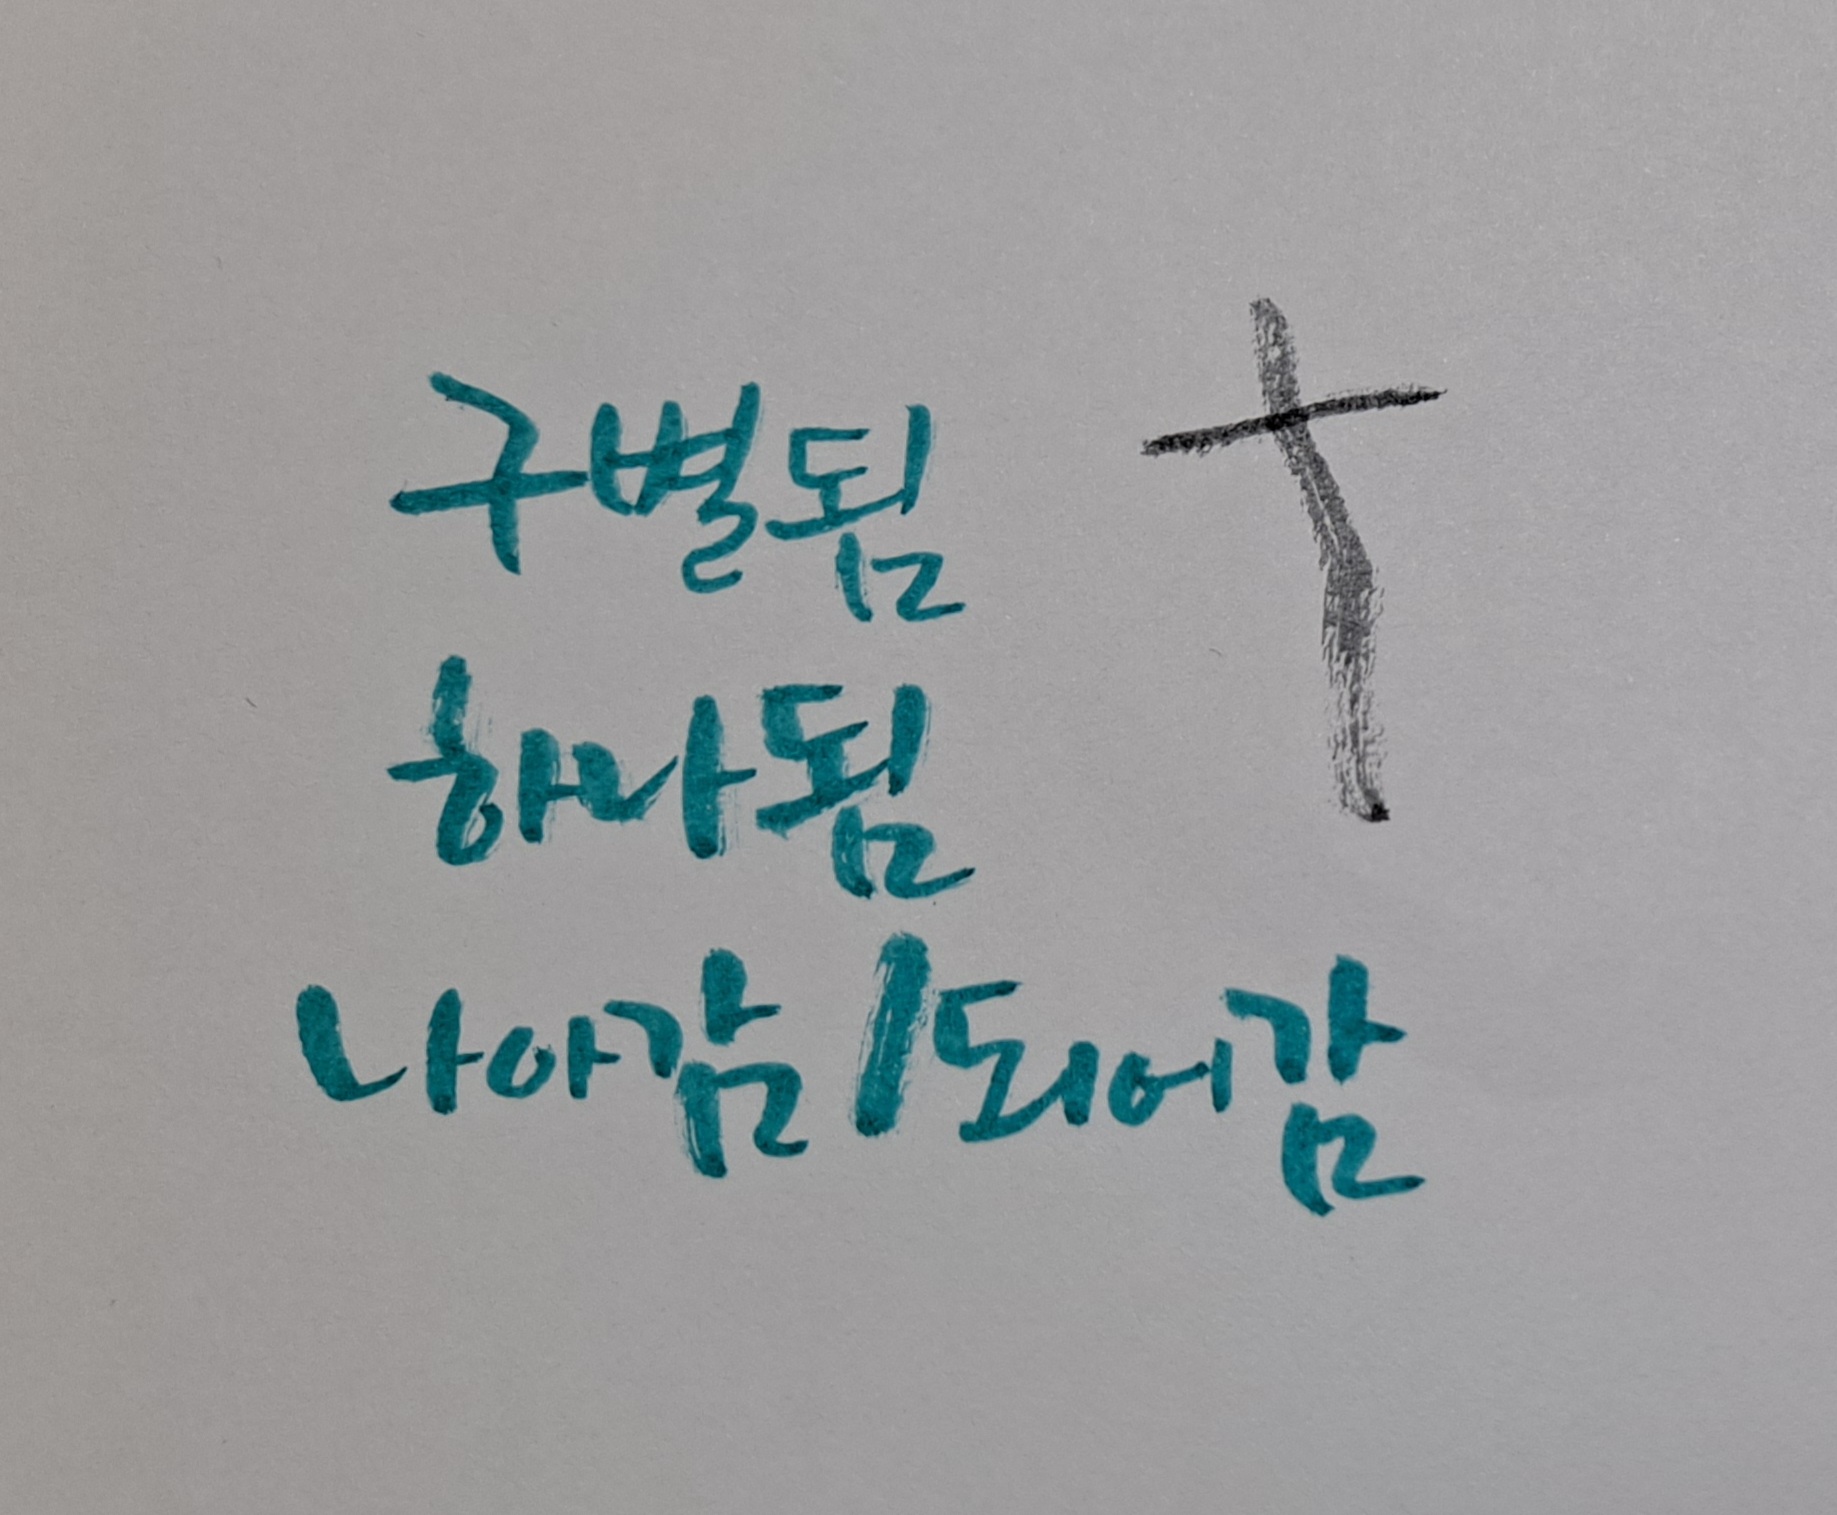 구별됨
하나됨
나아감/되어감